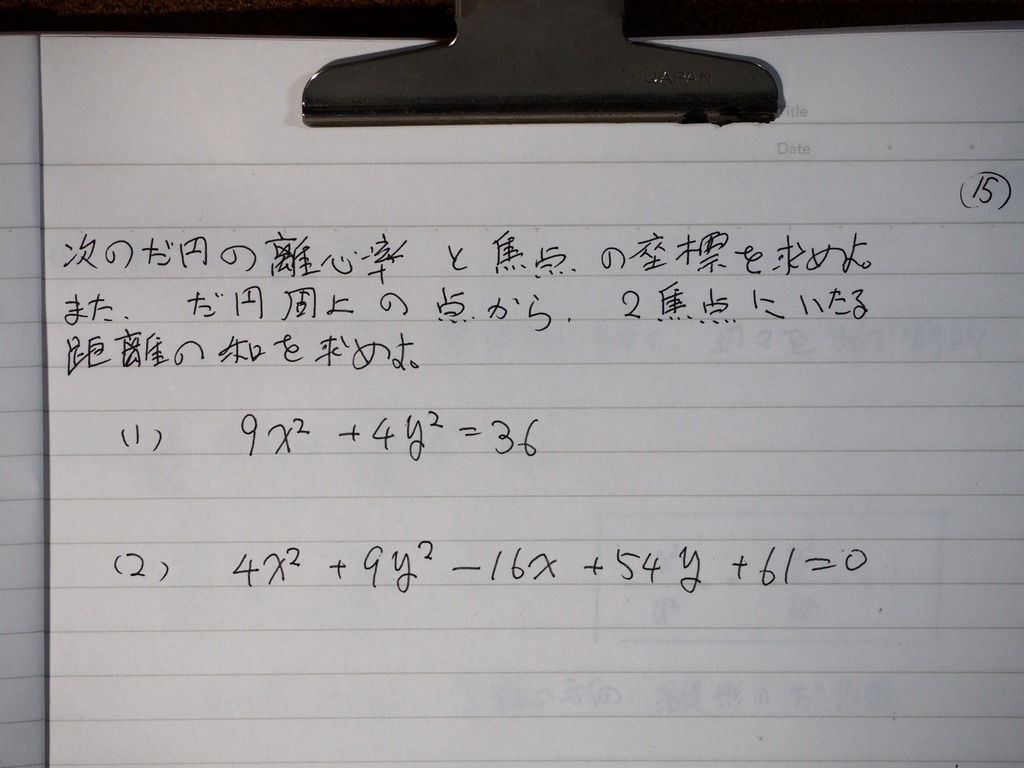 JAPAN
Title
Date
15
次のだ円の離心率 と 焦点 の座標を求めよ。
また. だ円周上の点から. 2焦点にいたる
距離の和を求めよ。
(1) 9x² + 4y² = 36
(2) 4x² + 9y² - 16x + 54y + 61 = 0